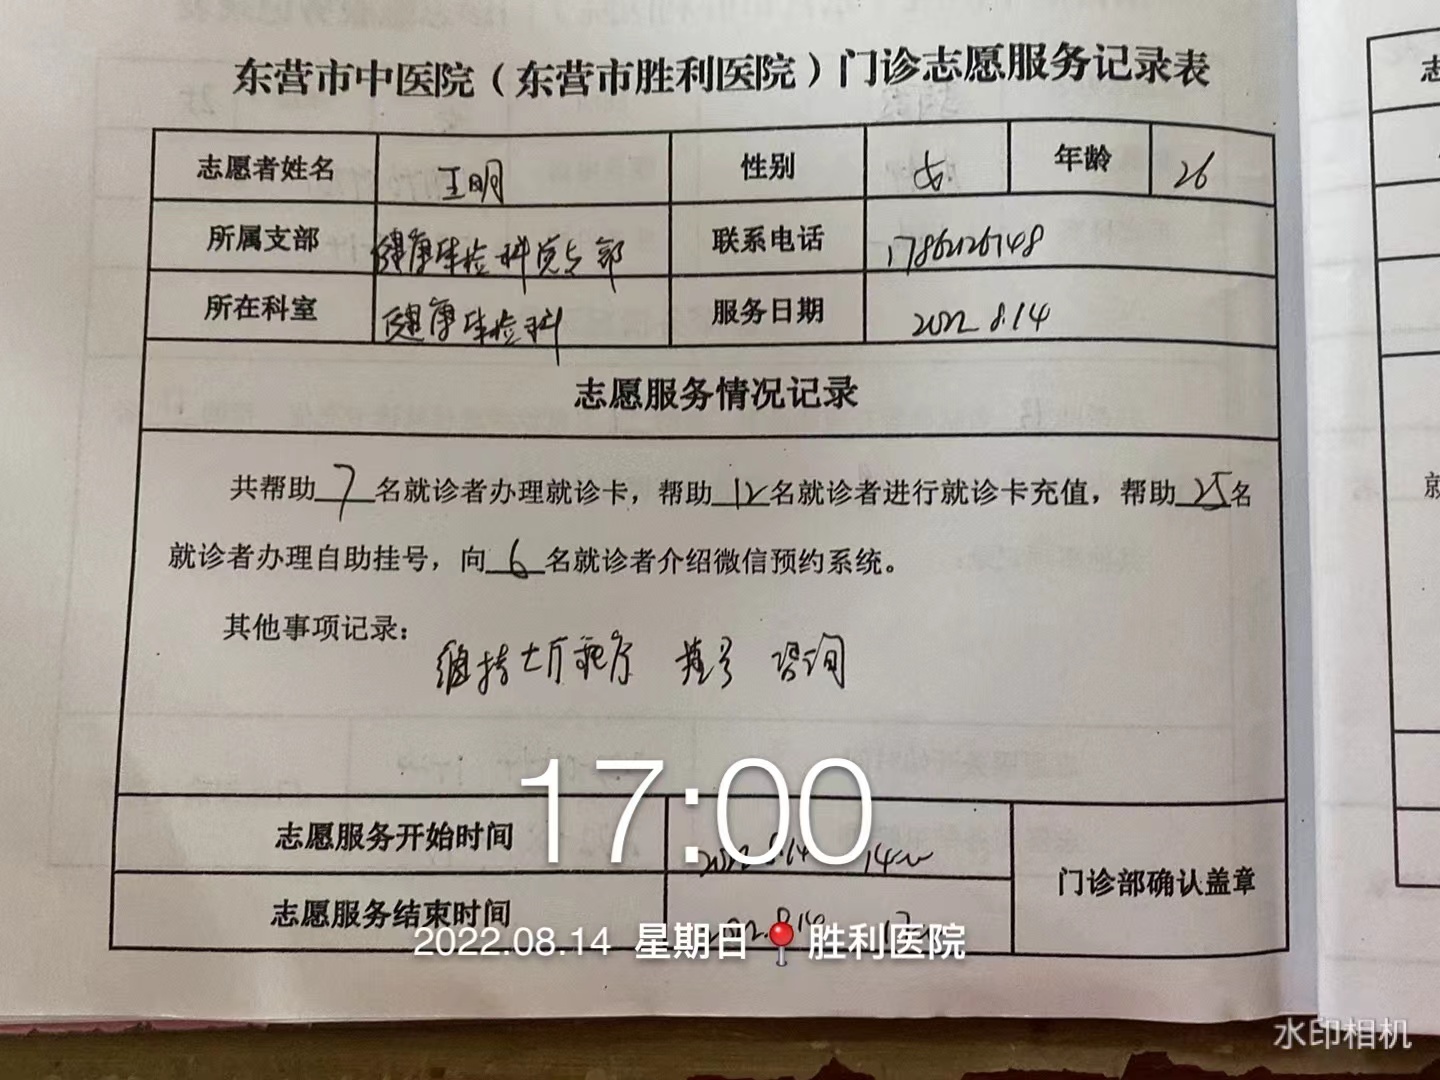 东营市中医院（东营市胜利医院）门诊志愿服务记录表
志愿者姓名 王明 性别 女 年龄 26
所属支部 健康体检科党支部 联系电话
所在科室 健康体检科 服务日期 2022.8.14
志愿服务情况记录
共帮助7名就诊者办理就诊卡，帮助12名就诊者进行就诊卡充值，帮助25名
就诊者办理自助挂号，向6名就诊者介绍微信预约系统。
其他事项记录：
维持大厅秩序 挂号 咨询
17:00
志愿服务开始时间 2022.8.14
门诊部确认盖章
志愿服务结束时间
2022.08.14 星期日 胜利医院
水印相机